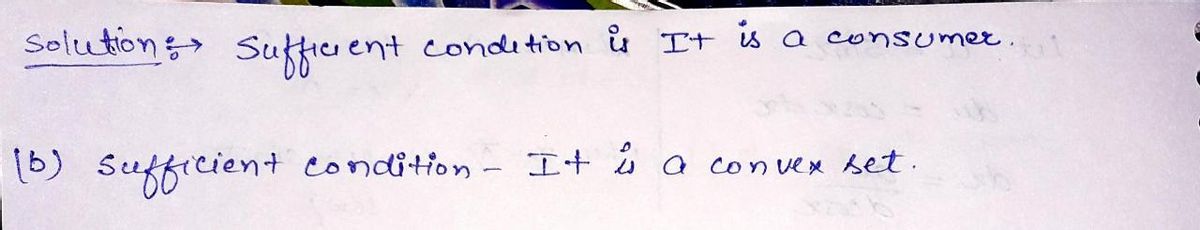 Solution:→ Sufficient condition is It is a consumer.
(b) Sufficient condition - It is a convex set.